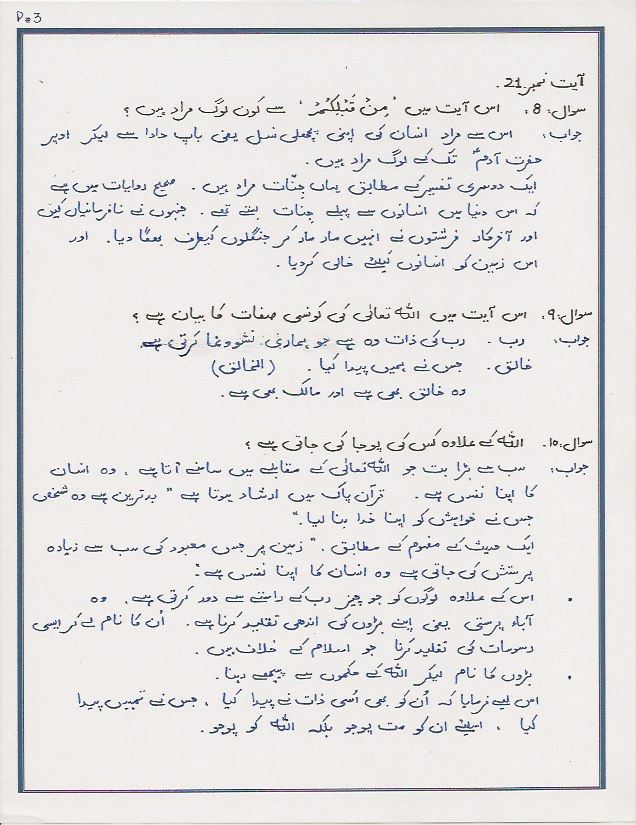 P#3
آیت نمبر 21۔
سوال:8: اس آیت میں 'مِنْ قَبْلِكُمْ' سے کون لوگ مراد ہیں؟
جواب: اس سے مراد انسان کی اپنی پچھلی نسل یعنی باپ دادا سے لیکر اوپر
حضرت آدمؑ تک کے لوگ مراد ہیں۔
ایک دوسری تفسیر کے مطابق یہاں جنّات مراد ہیں۔ صحیح روایات میں ہے
کہ اس دنیا میں انسانوں سے پہلے جنّات بستے تھے۔ جنہوں نے نافرمانیاں کیں
اور آخرکار فرشتوں نے انہیں مار مار کر جنگلوں کیطرف بھگا دیا۔ اور
اس زمین کو انسانوں کیلئے خالی کردیا۔
سوال:9: اس آیت میں اللہ تعالٰی کی کونسی صفات کا بیان ہے؟
جواب: رب۔ رب کی ذات وہ ہے جو ہماری نشوونما کرتی ہے۔
خالق۔ جس نے ہمیں پیدا کیا۔ (الخالق)
وہ خالق بھی ہے اور مالک بھی ہے۔
سوال:10۔ اللہ کے علاوہ کس کی پوجا کی جاتی ہے؟
جواب: سب سے بڑا بت جو اللہ تعالٰی کے مقابلے میں سامنے آتا ہے، وہ انسان
کا اپنا نفس ہے۔ قرآن پاک میں ارشاد ہوتا ہے "بدترین ہے وہ شخص
جس نے خواہش کو اپنا خدا بنا لیا۔"
ایک حدیث کے مفہوم کے مطابق، "زمین پر جس معبود کی سب سے زیادہ
پرستش کی جاتی ہے وہ انسان کا اپنا نفس ہے"۔
• اس کے علاوہ لوگوں کو جو چیز رب کے راستے سے دور کرتی ہے، وہ
آباء پرستی یعنی اپنے بڑوں کی اندھی تقلید کرنا ہے۔ اُن کا نام لے کر ایسی
رسومات کی تقلید کرنا جو اسلام کے خلاف ہیں۔
• بڑوں کا نام لیکر اللہ کے حکموں سے پیچھے دینا۔
اس لیے فرمایا کہ اُن کو بھی اُسی ذات نے پیدا کیا، جس نے تمہیں پیدا
کیا، اسلیئے ان کو مت پوجو بلکہ اللہ کو پوجو۔